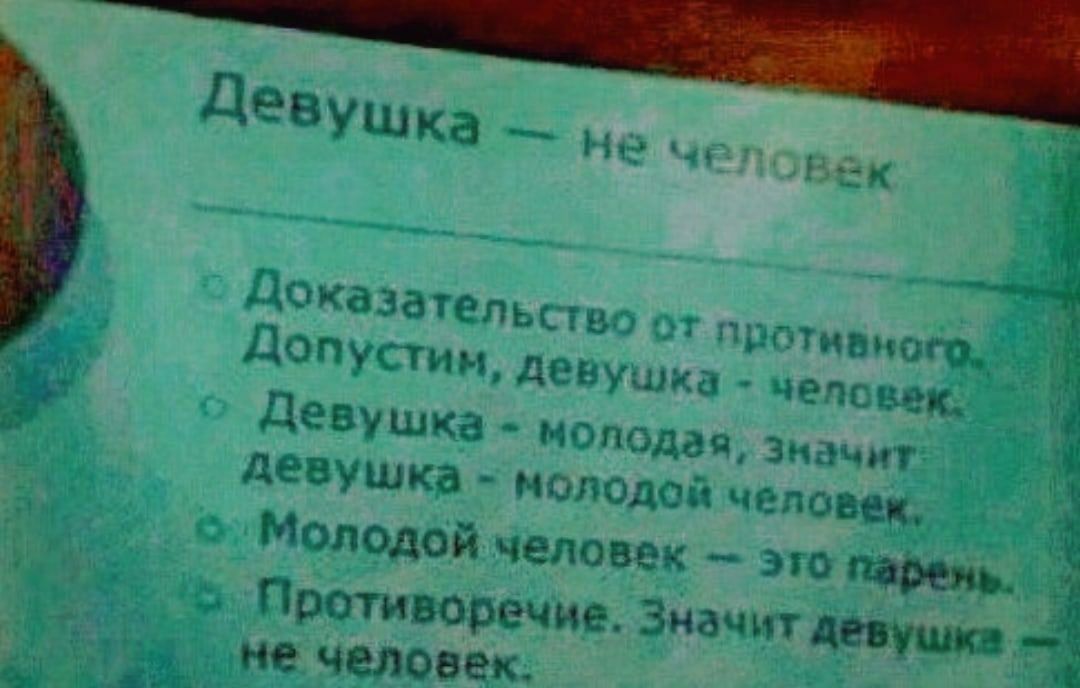 Девушка — не человек
Доказательство от противного.
Допустим, девушка - человек.
Девушка - молодая, значит
девушка - молодой человек.
Молодой человек — это парень.
Противоречие. Значит девушка —
не человек.